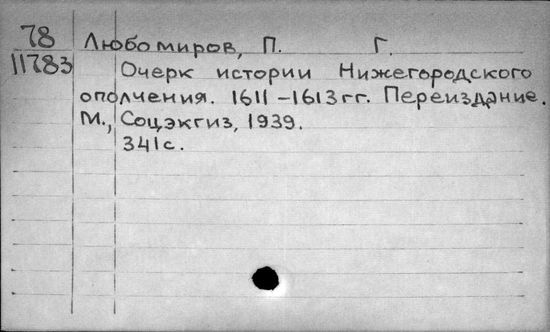 78
11783
Любомиров, П. Г.
Очерк истории Нижегородского
ополчения. 1611-1613 гг. Переиздание.
М., Соцэкгиз, 1939.
341с.